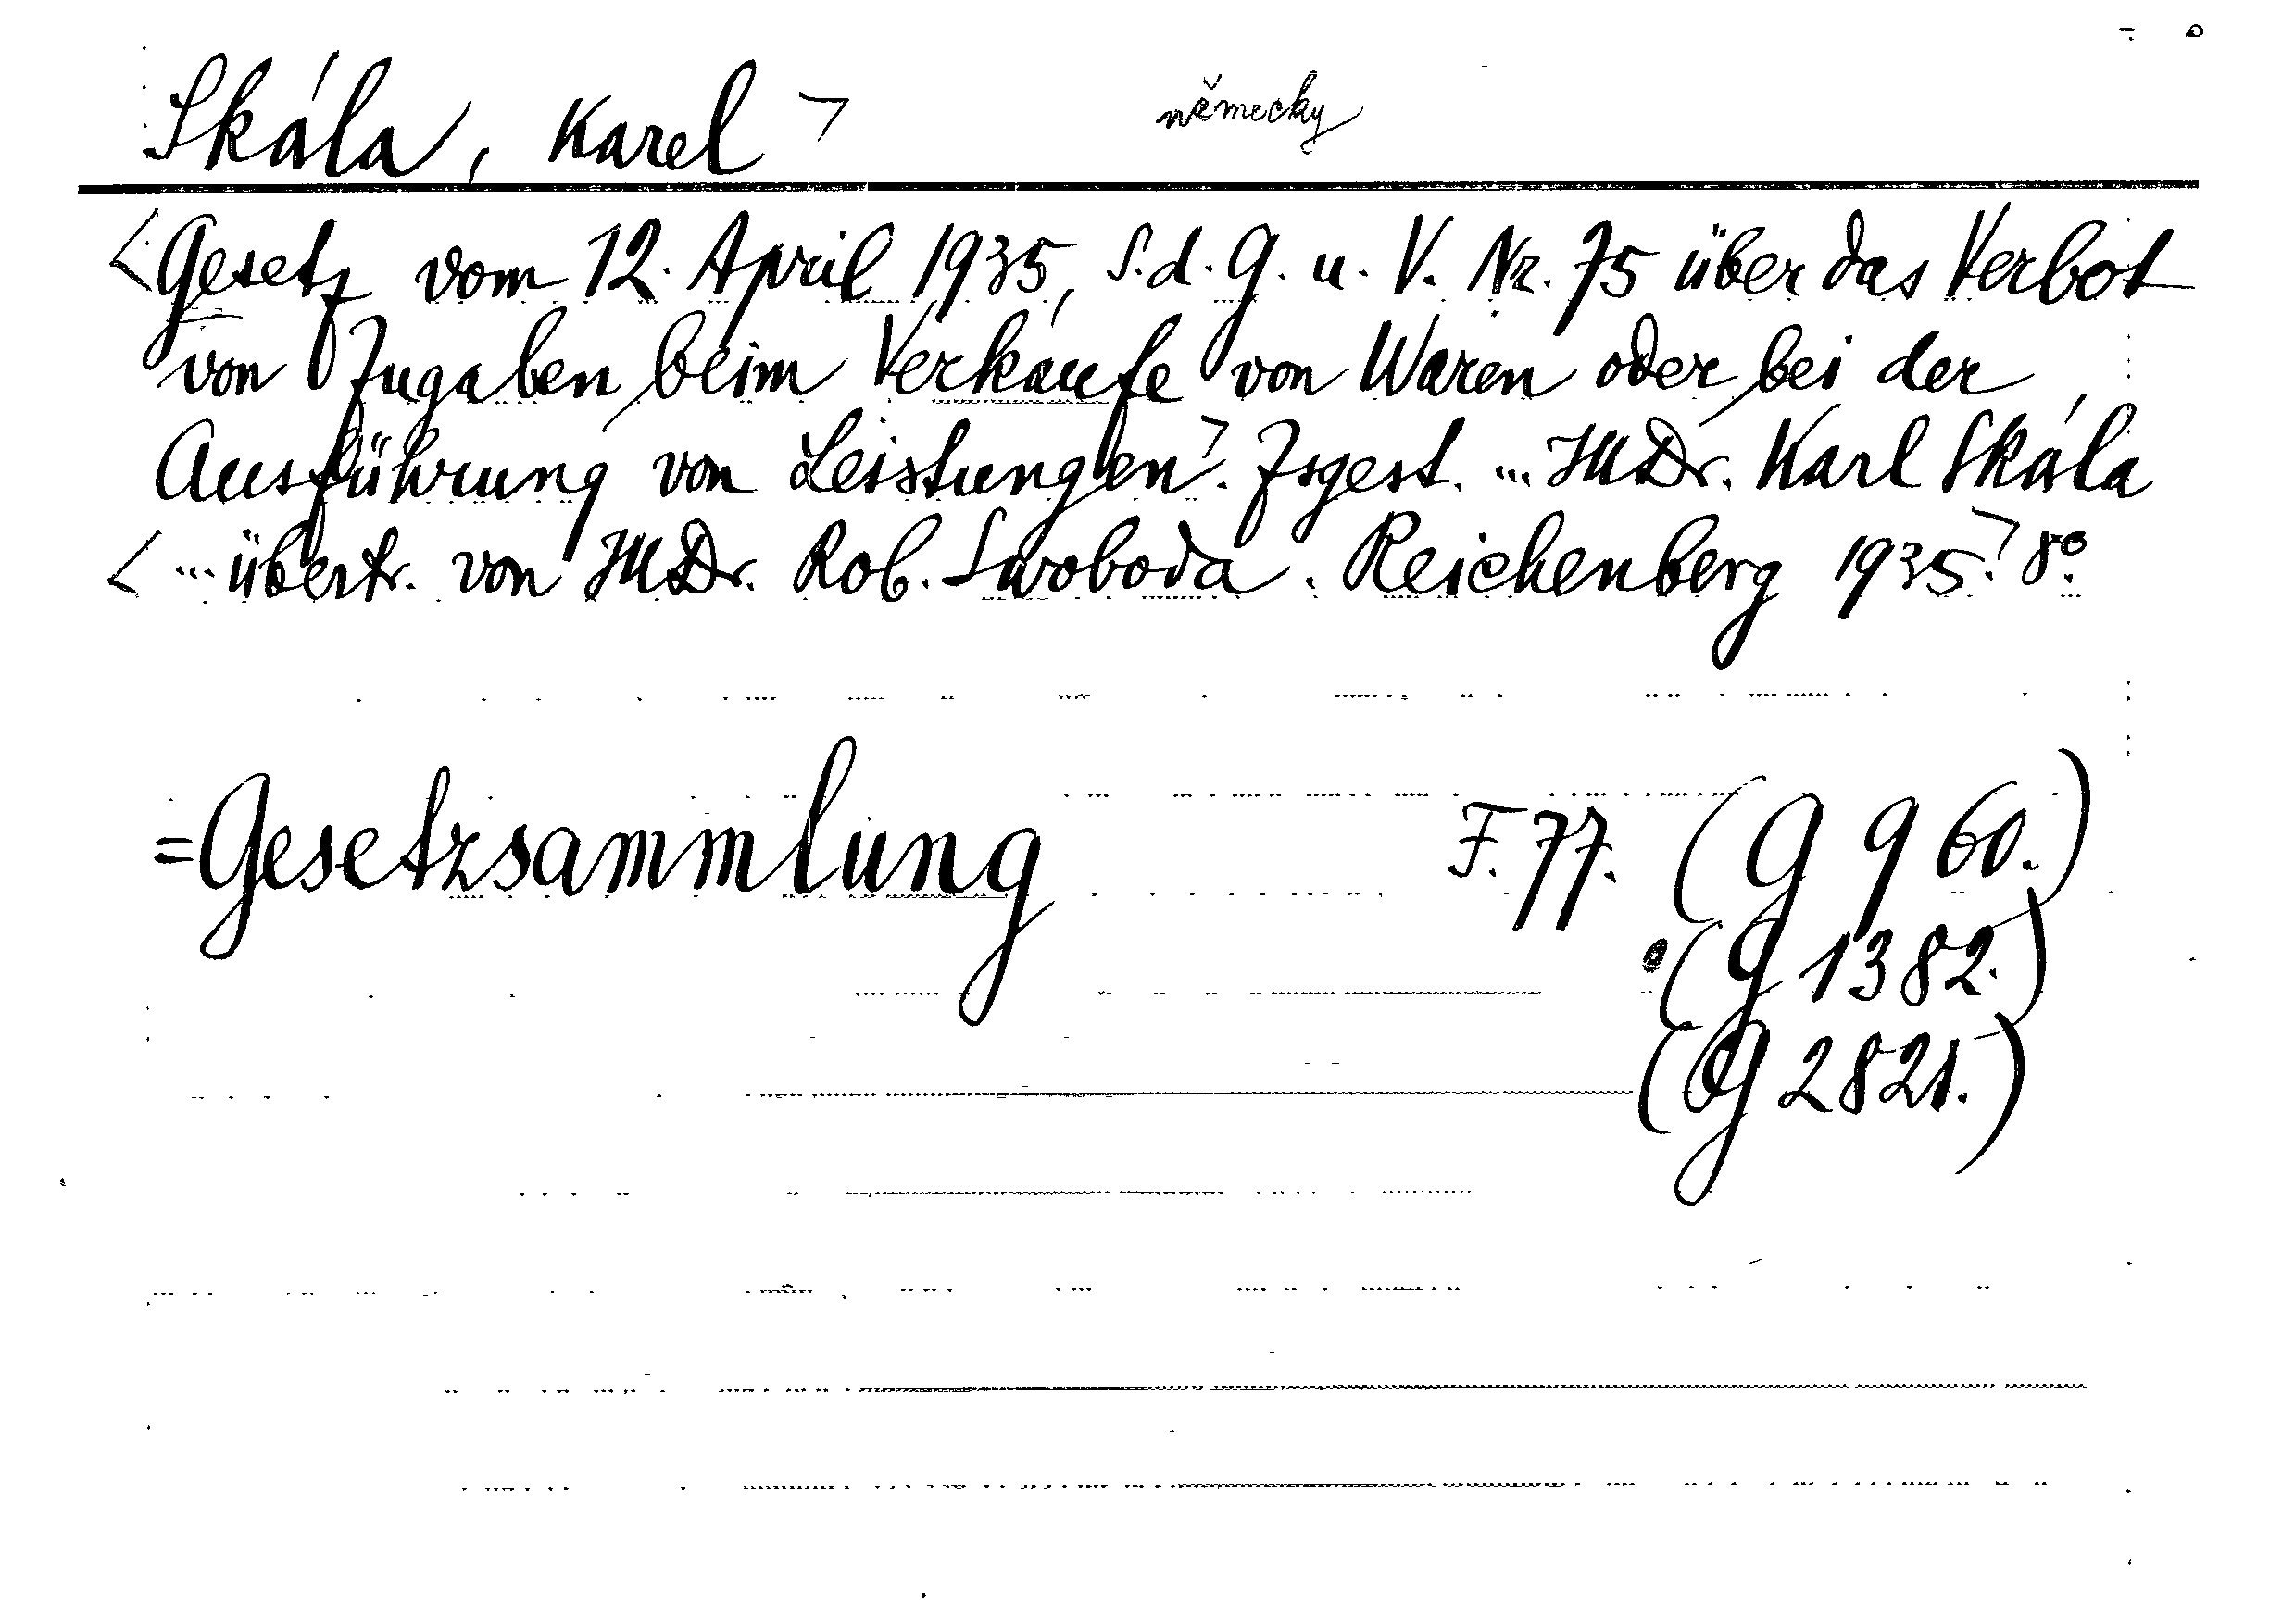 Skála, Karel > německy
<Gesetz vom 12. April 1935, S.d.G. u. V. Nr. 75 über das Verbot
von Zugaben beim Verkaufe von Waren oder bei der
Ausführung von Leistungen>. Zsgest. ... JUDr. Karl Skála
<... übertr. von JUDr. Rob. Swoboda. Reichenberg 1935>. 8°.
=Gesetzsammlung F. 77. (G 960.)
(G 1382.)
(G 2821.)